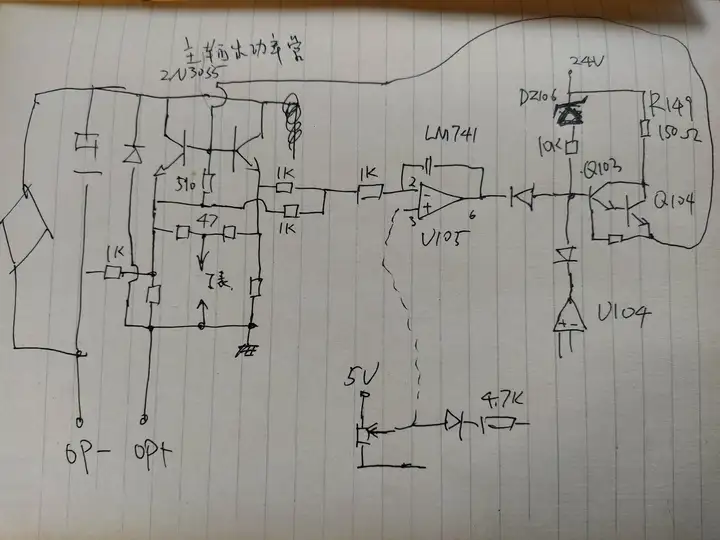 主输出功率管
2N3055
24V
DZ106
R149
150Ω
LM741
10K
Q103
1K
1K
2
590
Q104
3
6
1K
47
U105
1K
I表
U104
5V
4.7K
OP-
OP+